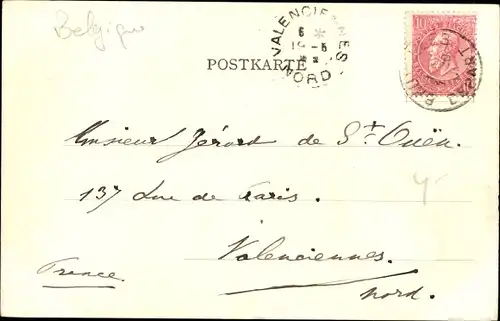 Belgique
VALENCIENNES
6 *
NORD
10
POSTKARTE
Monsieur Gérard de St Ouën.
137 Rue de Paris.
Valenciennes.
France.
Nord.